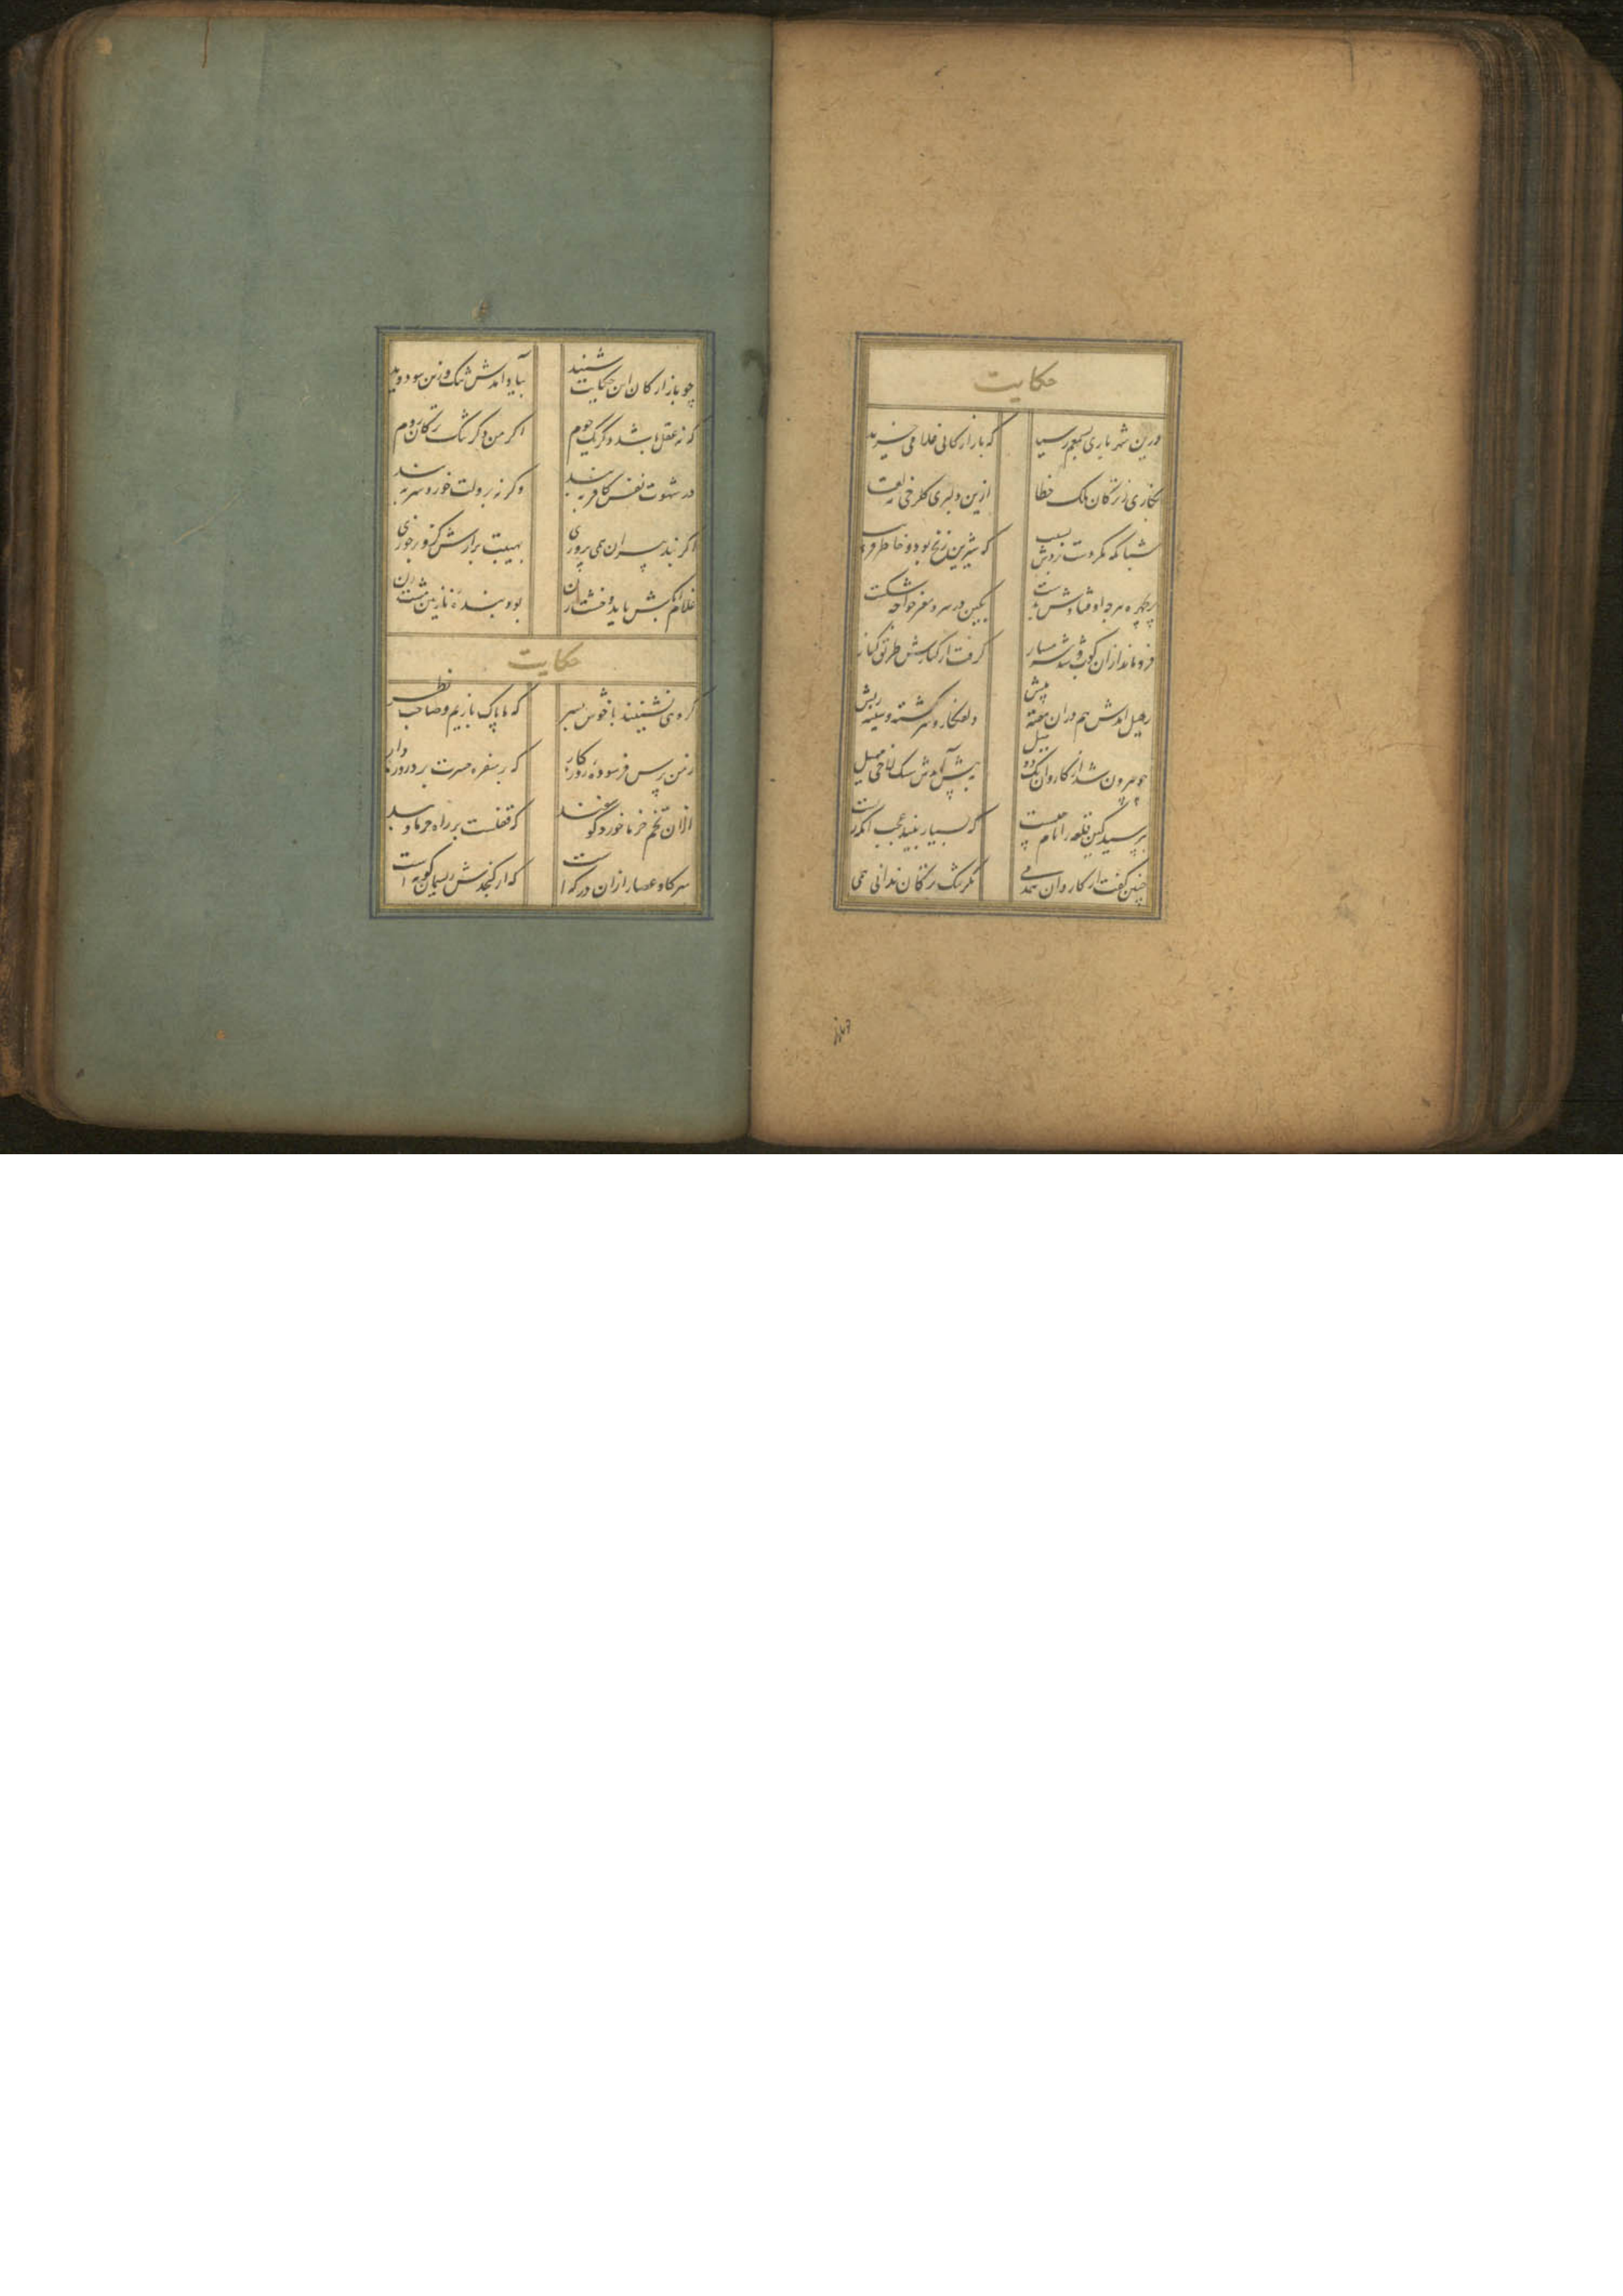 حکایت
درین شهر باری بسمعم رسید که بازارگانی غلامی خرید
نگاری ز ترکان ملک خطا ازین دلبری گلرخی
شبانگه مگر دست بردش بسیب که شیرین زنخ بود و خاطر فریب
پریچهره هرچه اوفتادش بدست بکین در سر و مغز خواجه شکست
فرو ماند ازان کوب و شد شرمسار گرفت از کنارش طریق کنار
رحیل امدش هم دران هفته پیش دلفکار و سرگشته و سینه ریش
چو بیرون شد از کاروان یک دو میل بپیش آمدش سنگلاخی مهیل
بپرسید کین قلعه را نام چیست که بسیار بیند عجب انکه زیست
چنین گفت از کاروان همدمی مگر تنگ ترکان ندانی همی
چو بازارگان این حکایت شنید بیاد امدش تنگ و زین سو دوید
که نه عقل باشد وگر یک جوم اگر من دگر تنگ ترکان روم
در شهوت نفس کافر ببند وگرنه لت خور و سر ببند
اگر بنده همی پروری بهیبت برارش کزو برخوری
غلام ابکش باید و خشت زن بود بنده نازنین مشت زن
حکایت
گروهی نشینند با خوش پسر که ما پاک بازیم و صاحب نظر
ز من پرس فرسوده روزکار که بر سفره حسرت برد روزه دار
ازان تخم خرما خورد گوسفند که قفلست بر راه خرما و بند
سر گاو عصار ازان در که است که از کنجدش ریسمان کوته است